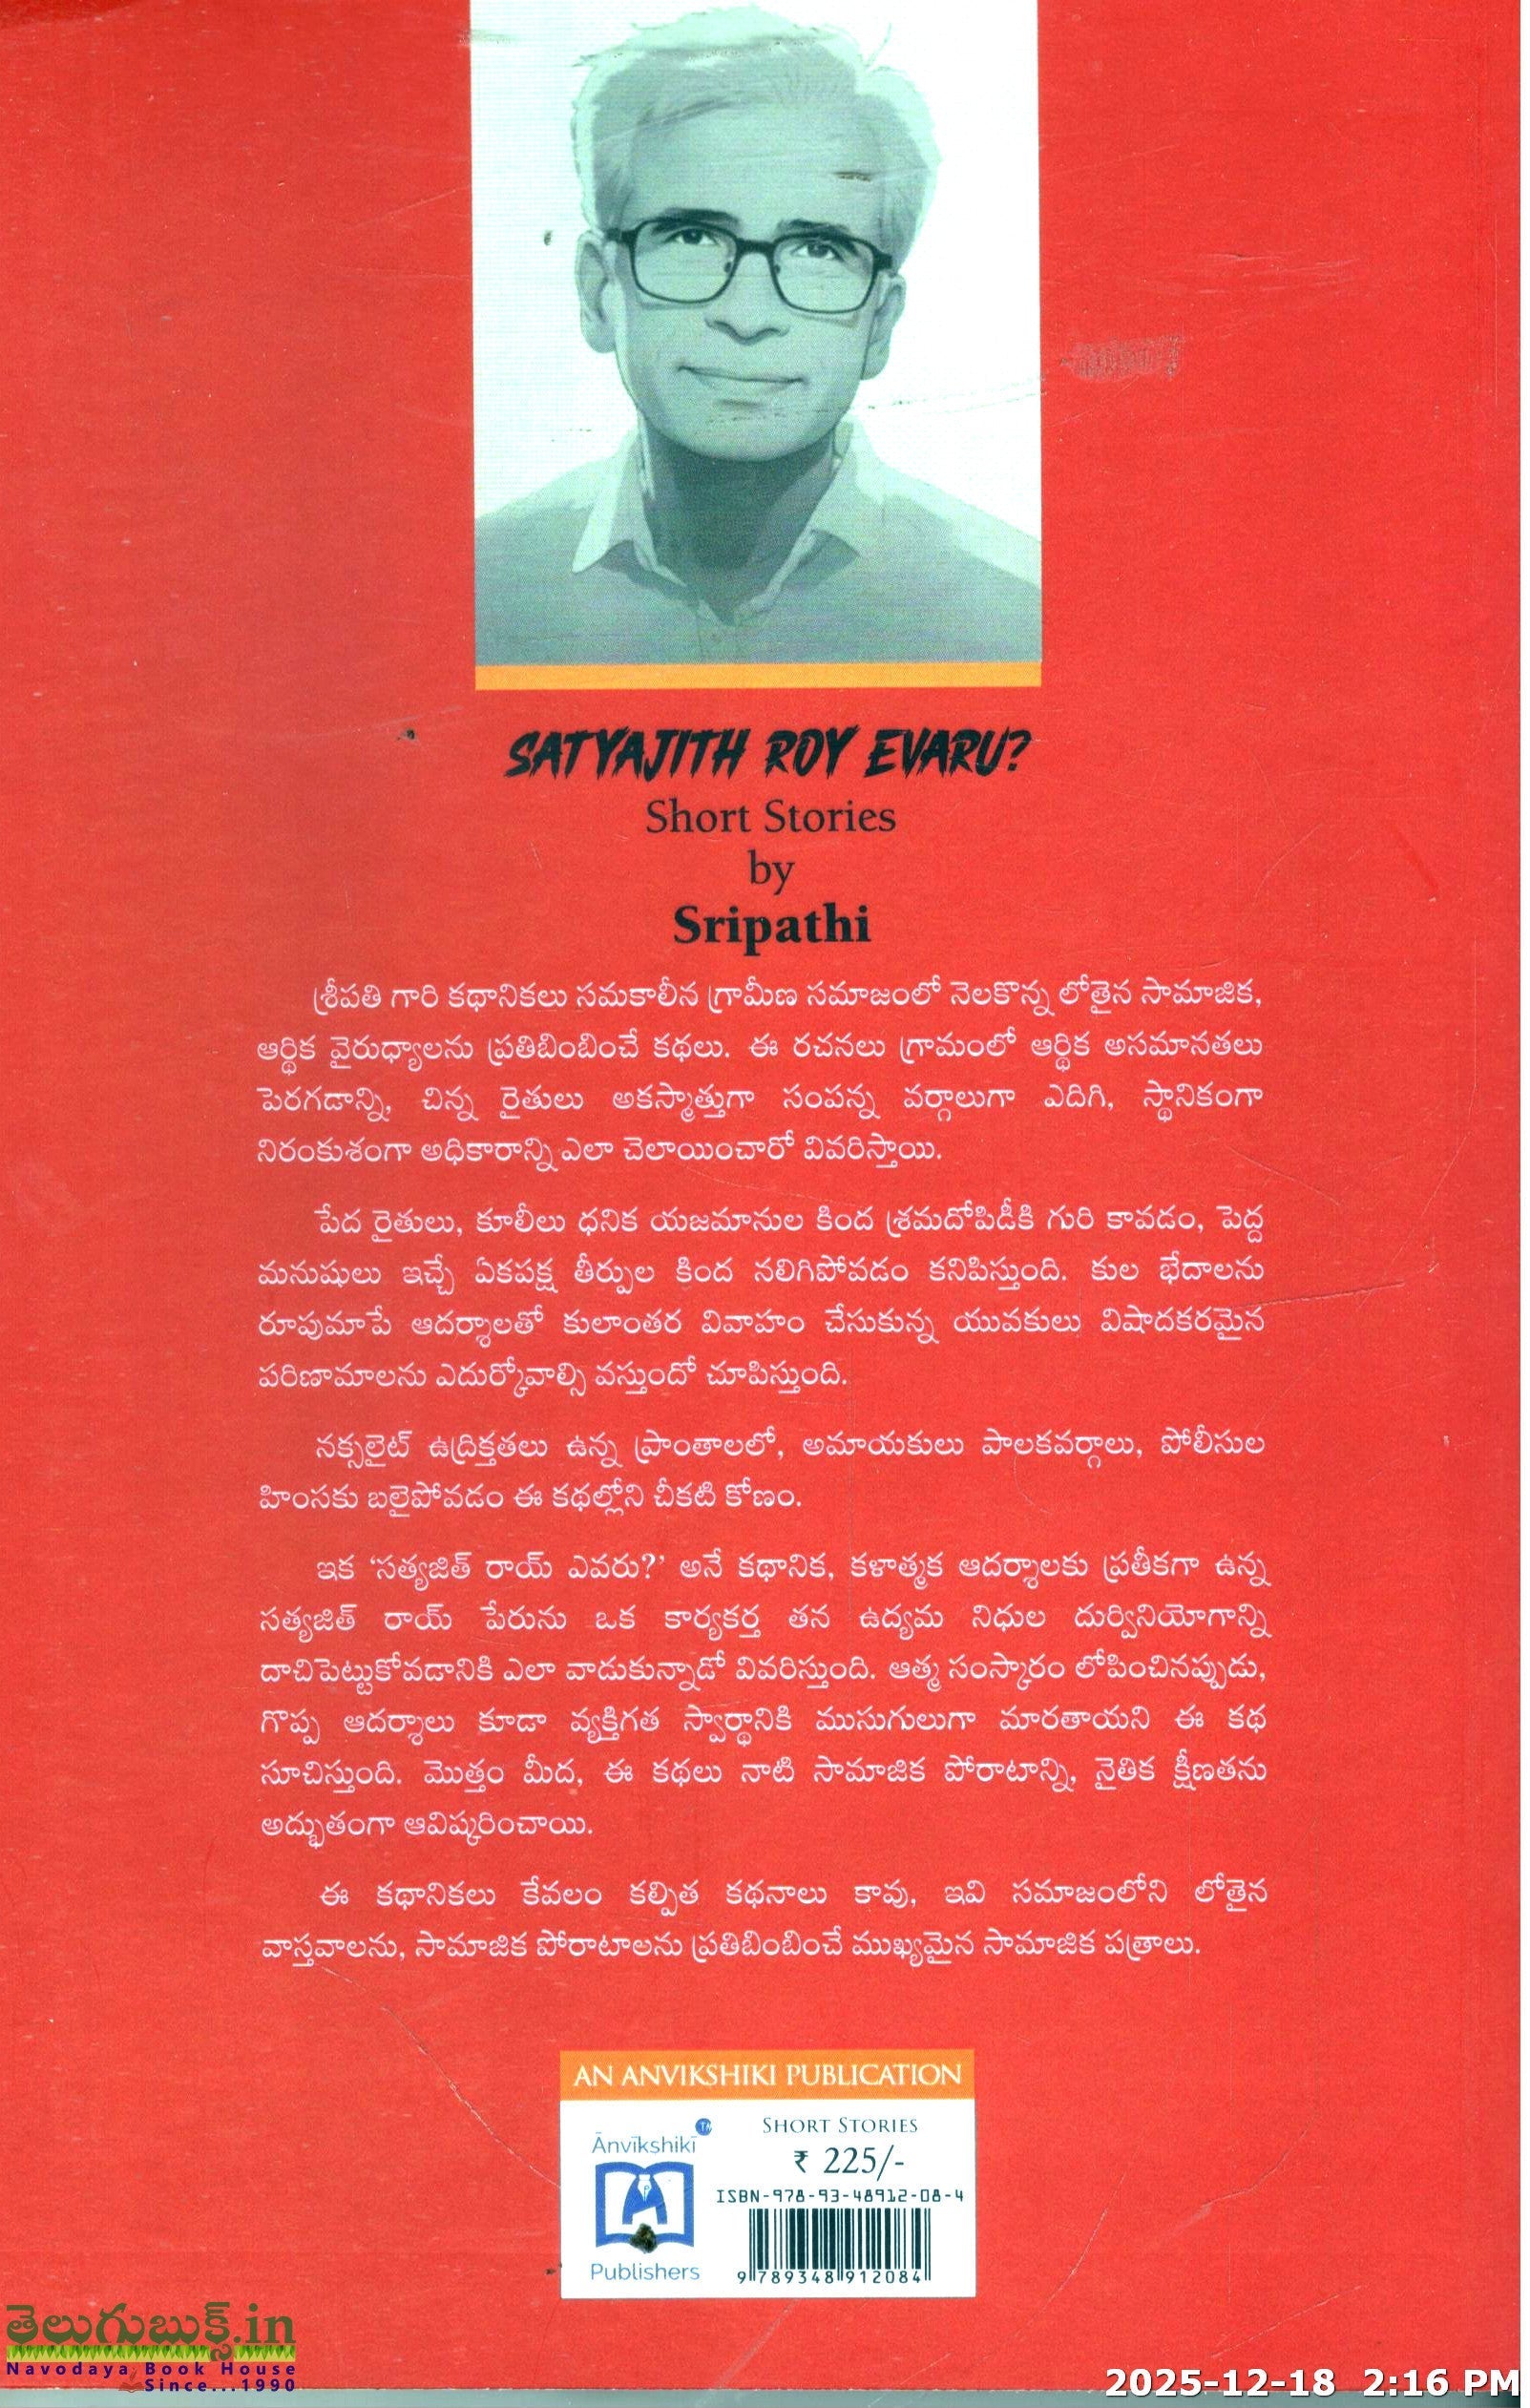 SATYAJITH ROY EVARU?
Short Stories
by
Sripathi
శ్రీపతి గారి కథానికలు సమకాలీన గ్రామీణ సమాజంలో నెలకొన్న లోతైన సామాజిక,
ఆర్థిక వైరుధ్యాలను ప్రతిబింబించే కథలు. ఈ రచనలు గ్రామంలో ఆర్థిక అసమానతలు
పెరగడాన్ని, చిన్న రైతులు అకస్మాత్తుగా సంపన్న వర్గాలుగా ఎదిగి, స్థానికంగా
నిరంకుశంగా అధికారాన్ని ఎలా చెలాయించారో వివరిస్తాయి.
పేద రైతులు, కూలీలు ధనిక యజమానుల కింద శ్రమదోపిడీకి గురి కావడం, పెద్ద
మనుషులు ఇచ్చే ఏకపక్ష తీర్పుల కింద నలిగిపోవడం కనిపిస్తుంది. కుల భేదాలను
రూపుమాపే ఆదర్శాలతో కులాంతర వివాహం చేసుకున్న యువకులు విషాదకరమైన
పరిణామాలను ఎదుర్కోవాల్సి వస్తుందో చూపిస్తుంది.
నక్సలైట్ ఉద్రిక్తతలు ఉన్న ప్రాంతాలలో, అమాయకులు పాలకవర్గాలు, పోలీసుల
హింసకు బలైపోవడం ఈ కథల్లోని చీకటి కోణం.
ఇక ‘సత్యజిత్ రాయ్ ఎవరు?’ అనే కథానిక, కళాత్మక ఆదర్శాలకు ప్రతీకగా ఉన్న
సత్యజిత్ రాయ్ పేరును ఒక కార్యకర్త తన ఉద్యమ నిధుల దుర్వినియోగాన్ని
దాచిపెట్టుకోవడానికి ఎలా వాడుకున్నాడో వివరిస్తుంది. ఆత్మ సంస్కారం లోపించినప్పుడు,
గొప్ప ఆదర్శాలు కూడా వ్యక్తిగత స్వార్థానికి ముసుగులుగా మారతాయని ఈ కథ
సూచిస్తుంది. మొత్తం మీద, ఈ కథలు నాటి సామాజిక పోరాటాన్ని, నైతిక క్షీణతను
అద్భుతంగా ఆవిష్కరించాయి.
ఈ కథానికలు కేవలం కల్పిత కథనాలు కావు, ఇవి సమాజంలోని లోతైన
వాస్తవాలను, సామాజిక పోరాటాలను ప్రతిబింబించే ముఖ్యమైన సామాజిక పత్రాలు.
AN ANVIKSHIKI PUBLICATION
Ānvīkshikī TM
Publishers
SHORT STORIES
₹ 225/-
ISBN-978-93-48912-08-4
9 789348 912084
తెలుగుబుక్స్.in
Navodaya Book House
Since...1990
2025-12-18 2:16 PM